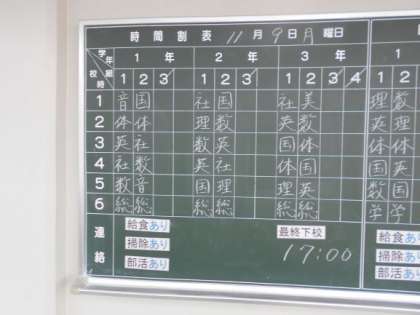 時間割表 11月9日月曜日
学年 1年 2年 3年
校時 組 1 2 3 1 2 3 1 2 3 4
1 音 国 社 国 社 美 理 数
2 体 体 理 数 英 数 英 理
3 英 社 数 英 国 体 体 国
4 社 数 英 社 体 国 国 英
5 数 音 国 理 理 英 数 国
6 総 総 総 総 総 総 学 学
連絡
給食あり 最終下校 給食あ
掃除あり 17:00 掃除あ
部活あり 部活あ